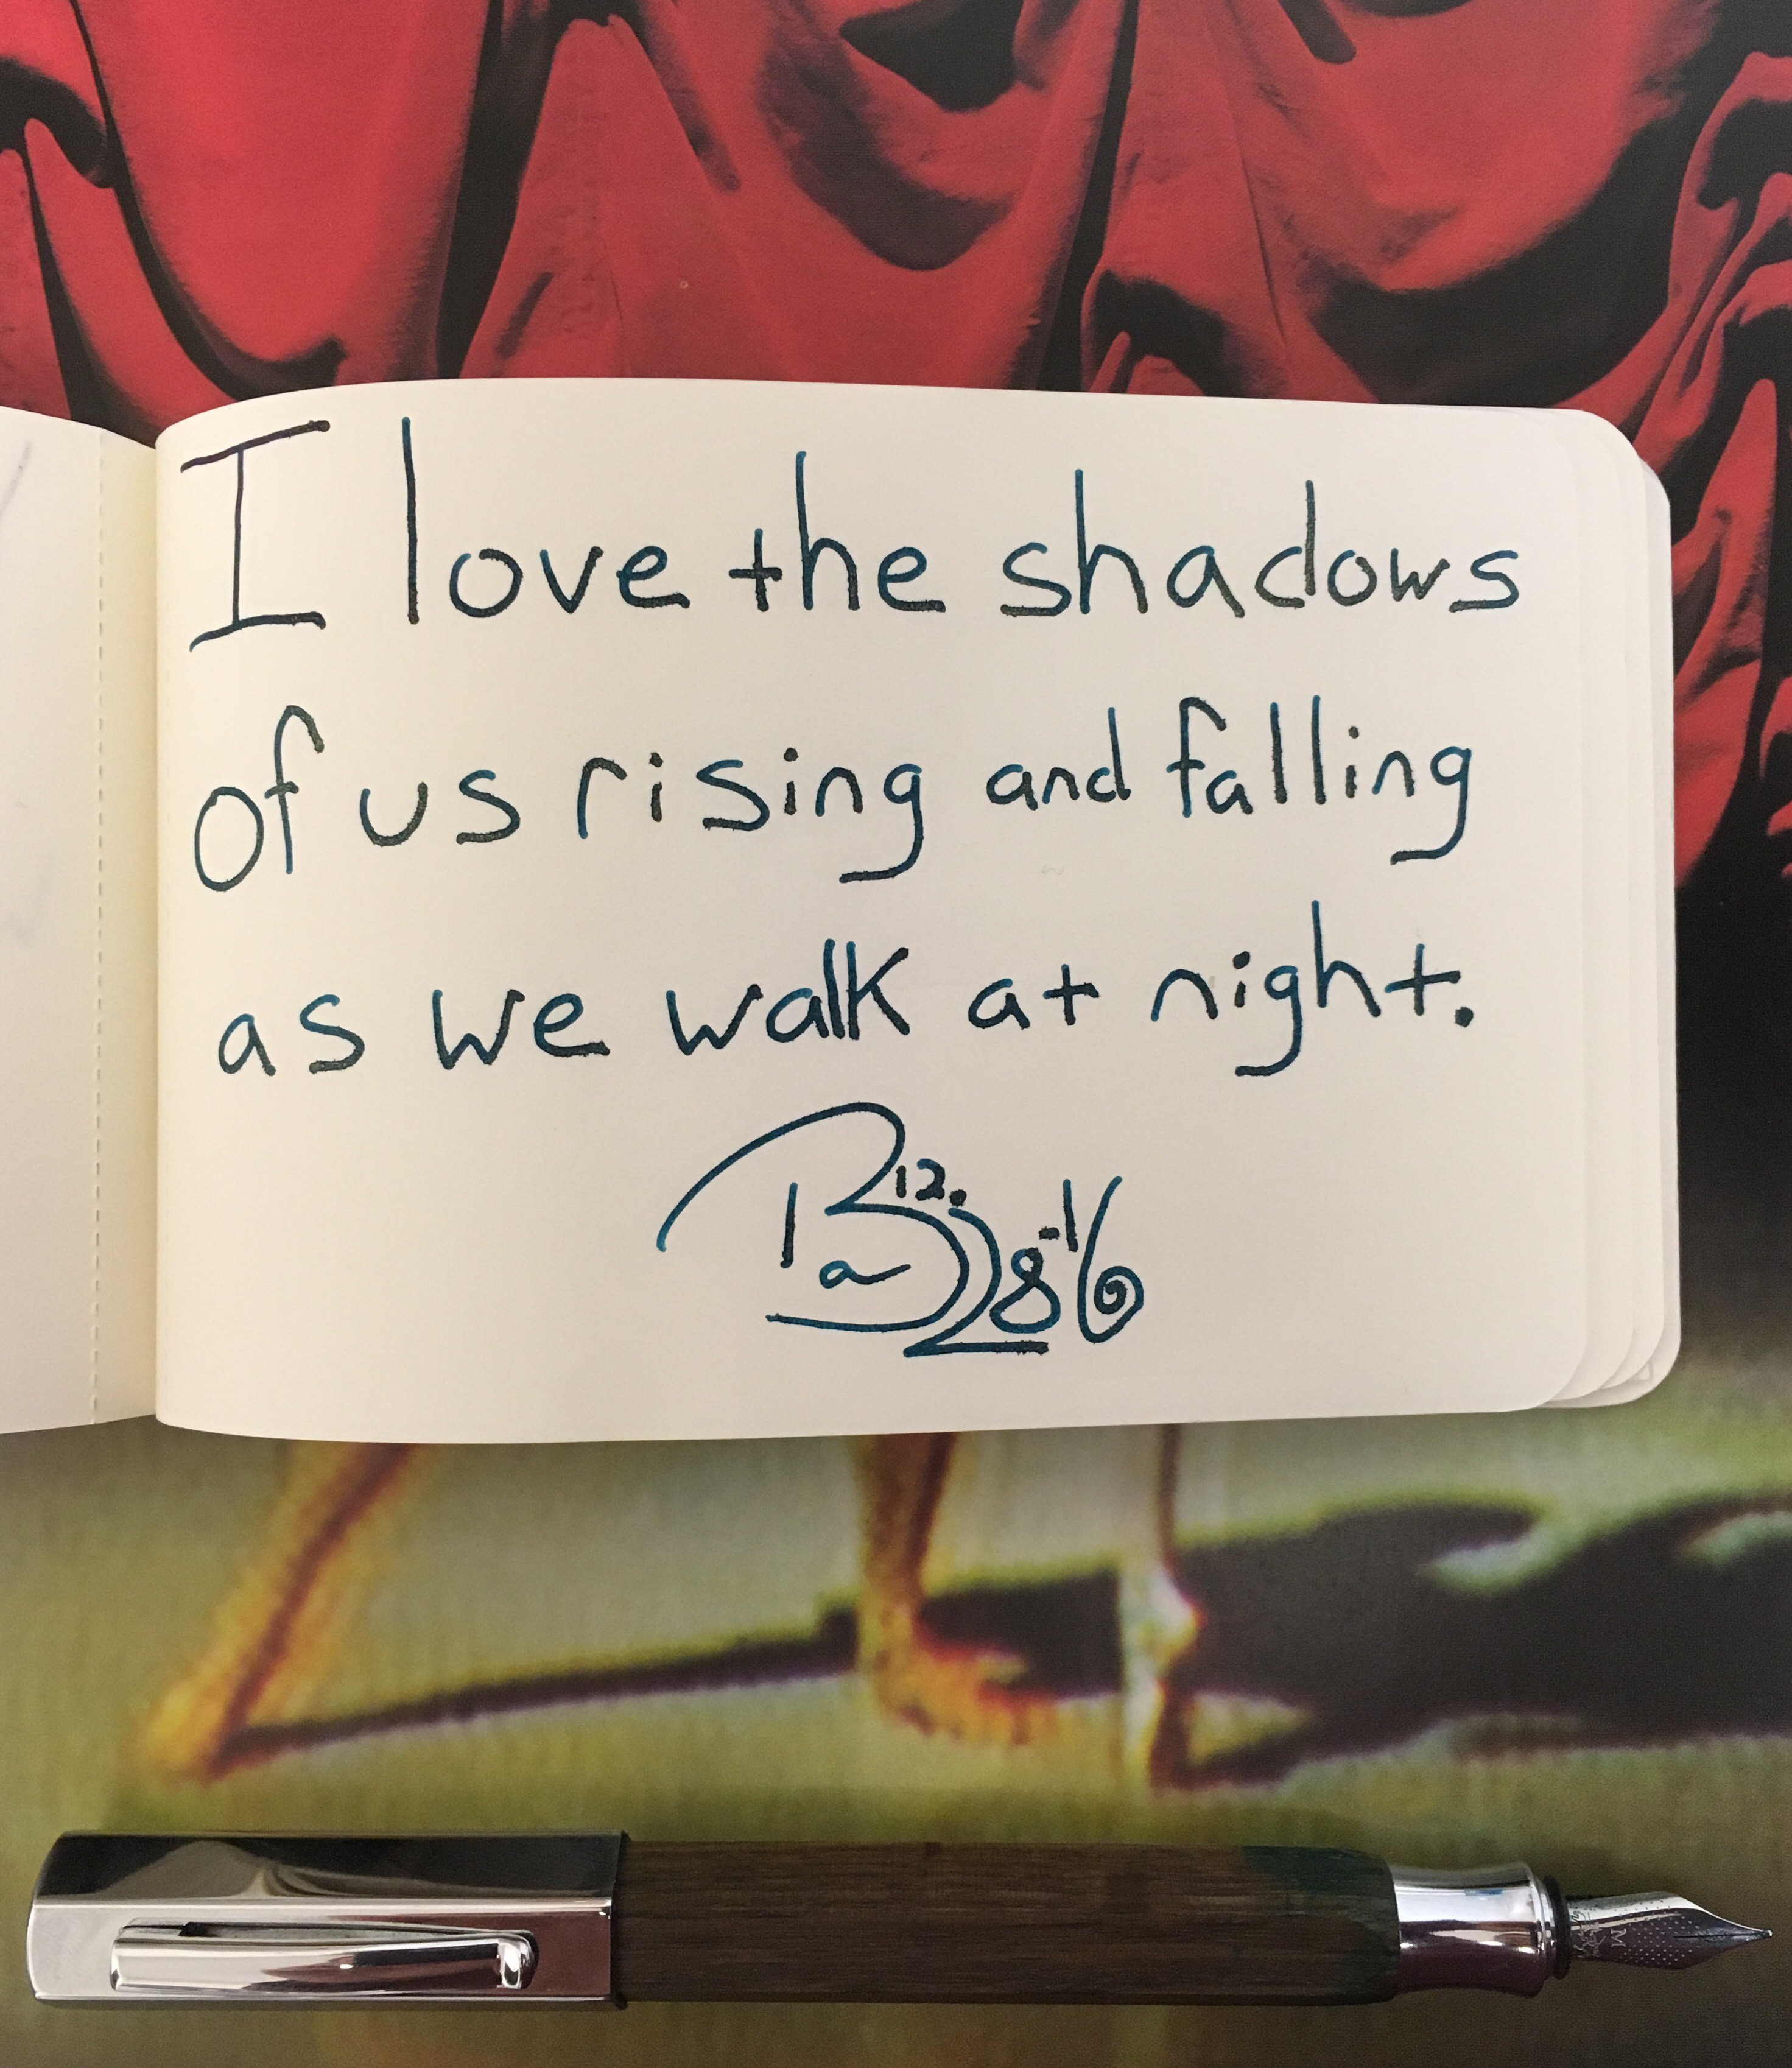 I love the shadows
of us rising and falling
as we walk at night.
12.28-16
M